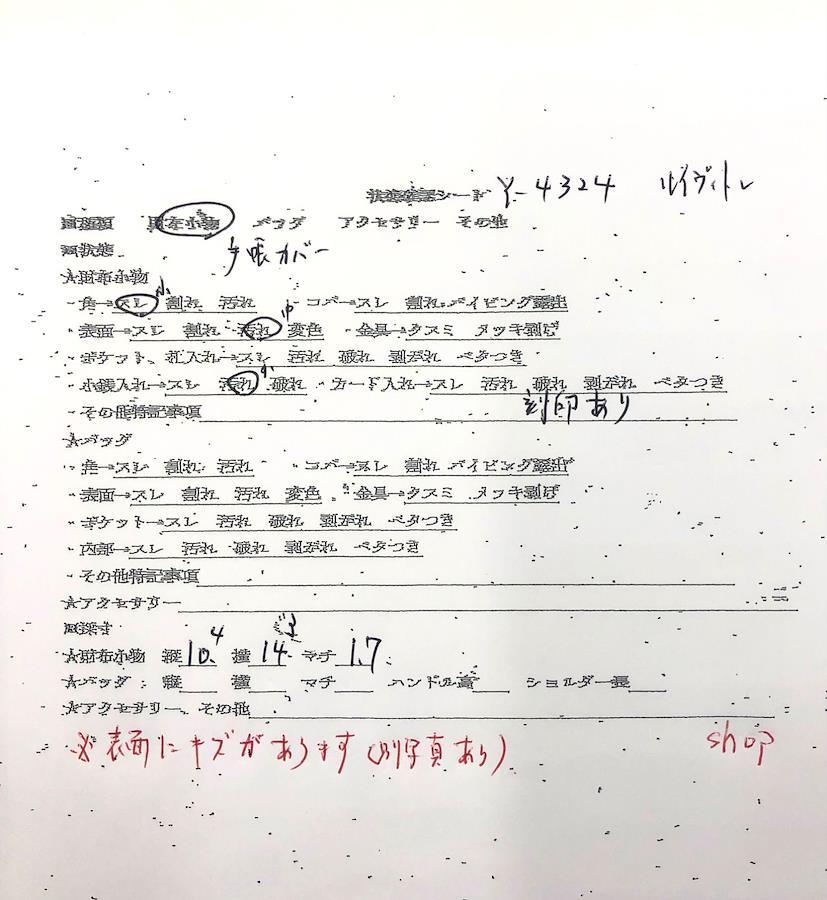 状態確認シート Y-4324 ルイヴィトン
財布小物 バッグ アクセサリー その他
手帳カバー
★財布小物
・角→スレ 割れ 汚れ ・コバ→スレ 割れ パイピング露出
小
・表面→スレ 割れ 汚れ 変色 ・金具→クスミ メッキ剥げ
中
・ポケット、札入れ→スレ 汚れ 破れ 剥がれ ベタつき
・小銭入れ→スレ 汚れ 破れ ・カード入れ→スレ 汚れ 破れ 剥がれ ベタつき
小
・その他特記事項 刻印あり
★バッグ
・角→スレ 割れ 汚れ ・コバ→スレ 割れ パイピング露出
・表面→スレ 割れ 汚れ 変色 ・金具→クスミ メッキ剥げ
・ポケット→スレ 汚れ 破れ 剥がれ ベタつき
・内部→スレ 汚れ 破れ 剥がれ ベタつき
・その他特記事項
★アクセサリー
■採寸
★財布小物 縦10.4 横14.3 マチ1.7
★バッグ: 縦 横 マチ ハンドル高 ショルダー長
★アクセサリー、その他
※表面にキズがあります(別写真あり) shop